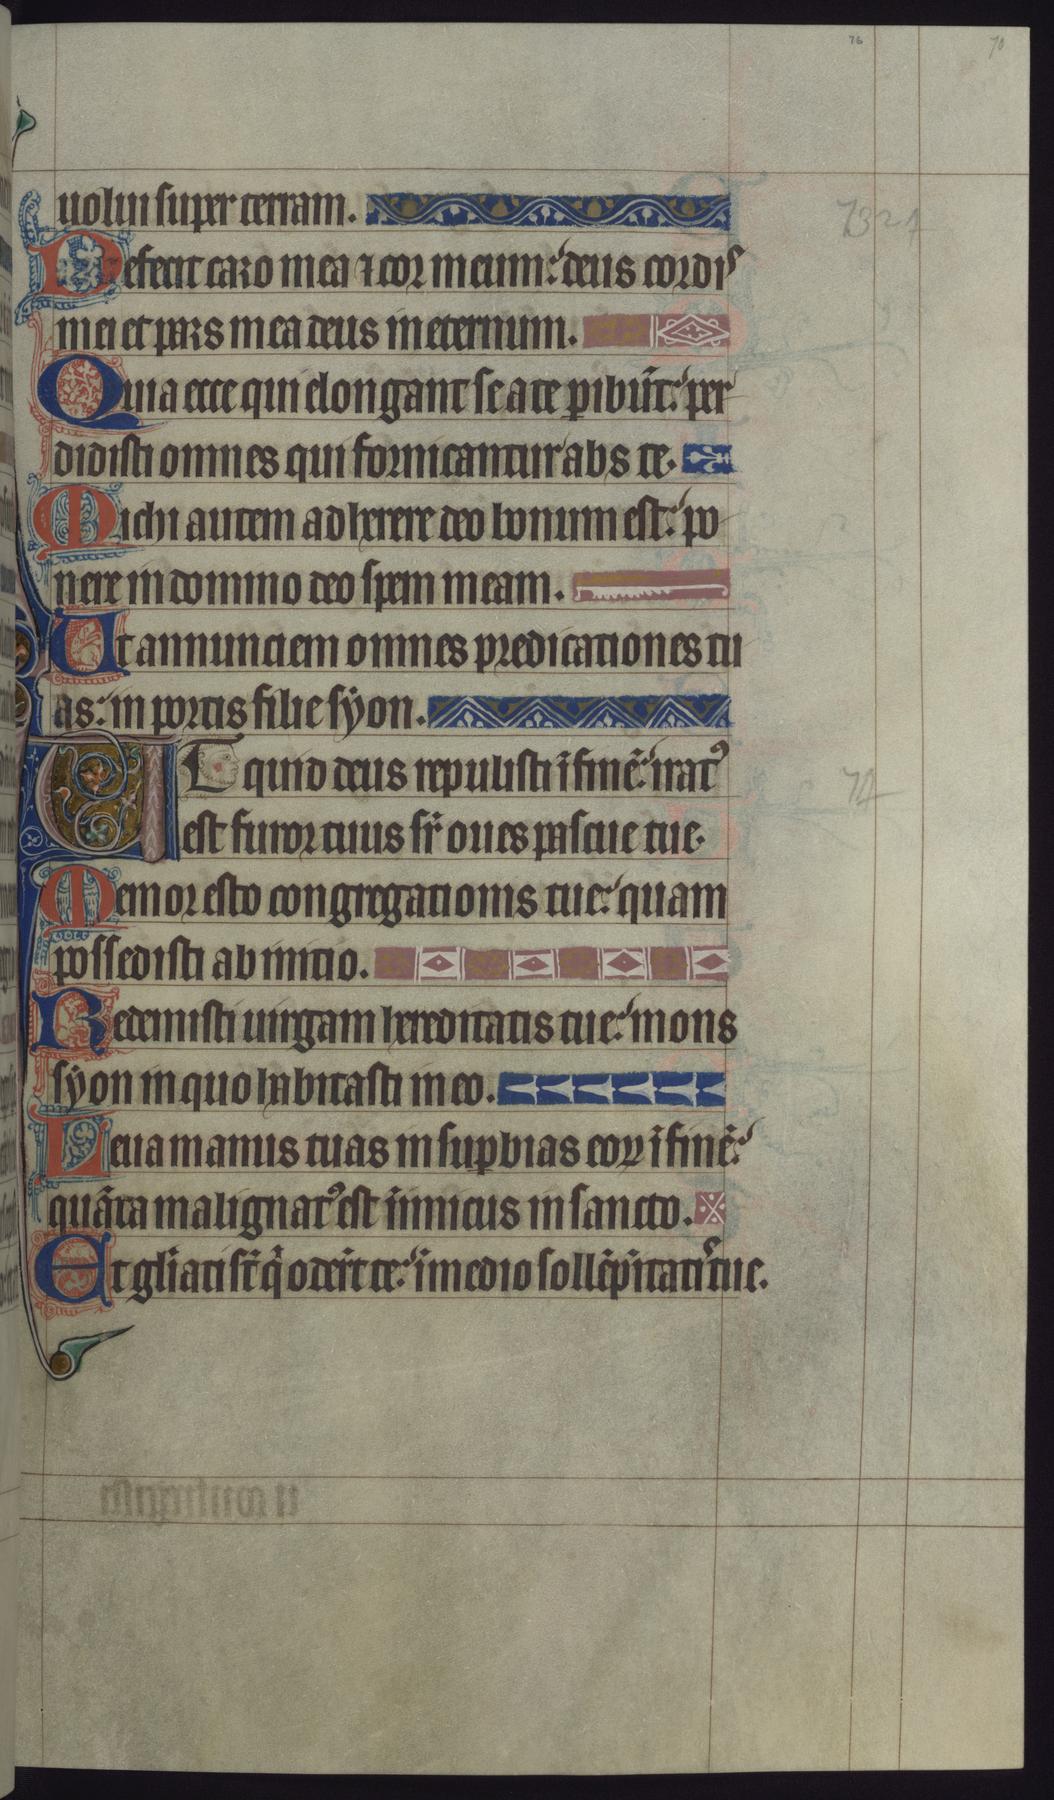 76
70
uolui super terram.
7324
Defecit caro mea ⁊ cor meum: deus cordis
mei et pars mea deus in eternum.
Quia ecce qui elongant se a te ꝑibūt: per
didisti omnes qui fornicantur abs te.
Michi autem adherere deo bonum est: po
nere in domino deo spem meam.
Ut annunciem omnes predicationes tu
as: in portis filie syon.
Ut quid deus repulisti ī finē: iratꝰ
74
est furor tuus sr̄ oues pascue tue.
Memor esto congregationis tue: quam
possedisti ab initio.
Redemisti uirgam hereditatis tue: mons
syon in quo habitasti in eo.
Leua manus tuas in suꝑbias eoꝝ ī finē:
quāta malignatꝰ est īimicus in sancto.
Et gl̄iati sт̄ q̄ oder̄t te: ī medio sollēp̄itatis tue.